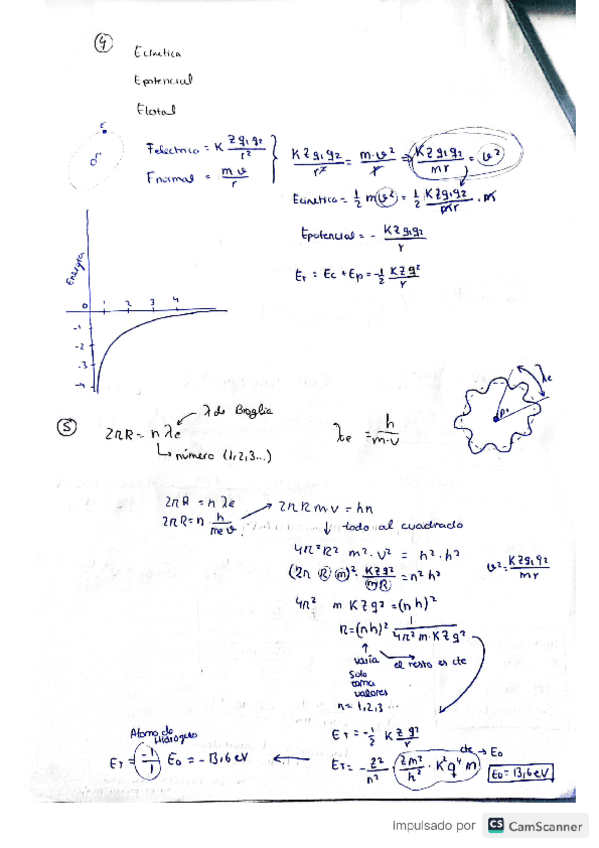 ④
Ecinética
Epotencial
Etotal
e⁻
Felectrica = K Z q₁ q₂ / r²
Fnormal = m v / r
K Z q₁ q₂ / r² = m·v² / r ⇒ K Z q₁ q₂ / m r = v²
Ecinética = 1/2 m v² = 1/2 K Z q₁ q₂ / m r · m
Epotencial = - K Z q₁ q₂ / r
E_T = Ec + Ep = - 1/2 K Z q² / r
Energía
0 1 2 3 4
-1
-2
-3
-4
⑤
λ de Broglie
2πR = n λe
número (1,2,3...)
λe = h / m·v
λe
2πR = n λe
2πR = n · h / me v
2πRmv = hn
todo al cuadrado
4π²R² m²·v² = n²·h²
(2π R m)² · K Z q² / m R = n² h²
v² = K Z q₁ q₂ / m r
4π² m K Z q² = (nh)²
R = (nh)² 1 / 4π² m·K Z q²
varía
el resto es cte
Solo
toma
valores
n = 1,2,3...
E_T = - 1/2 K Z q² / r
Atomo de
Hidrógeno
E_T = -1/1 E₀ = -13,6 eV
E_T = - Z² / n² · 2π² / h² · K² q⁴ m
cte → E₀
E₀ = 13,6 eV
Impulsado por CS CamScanner